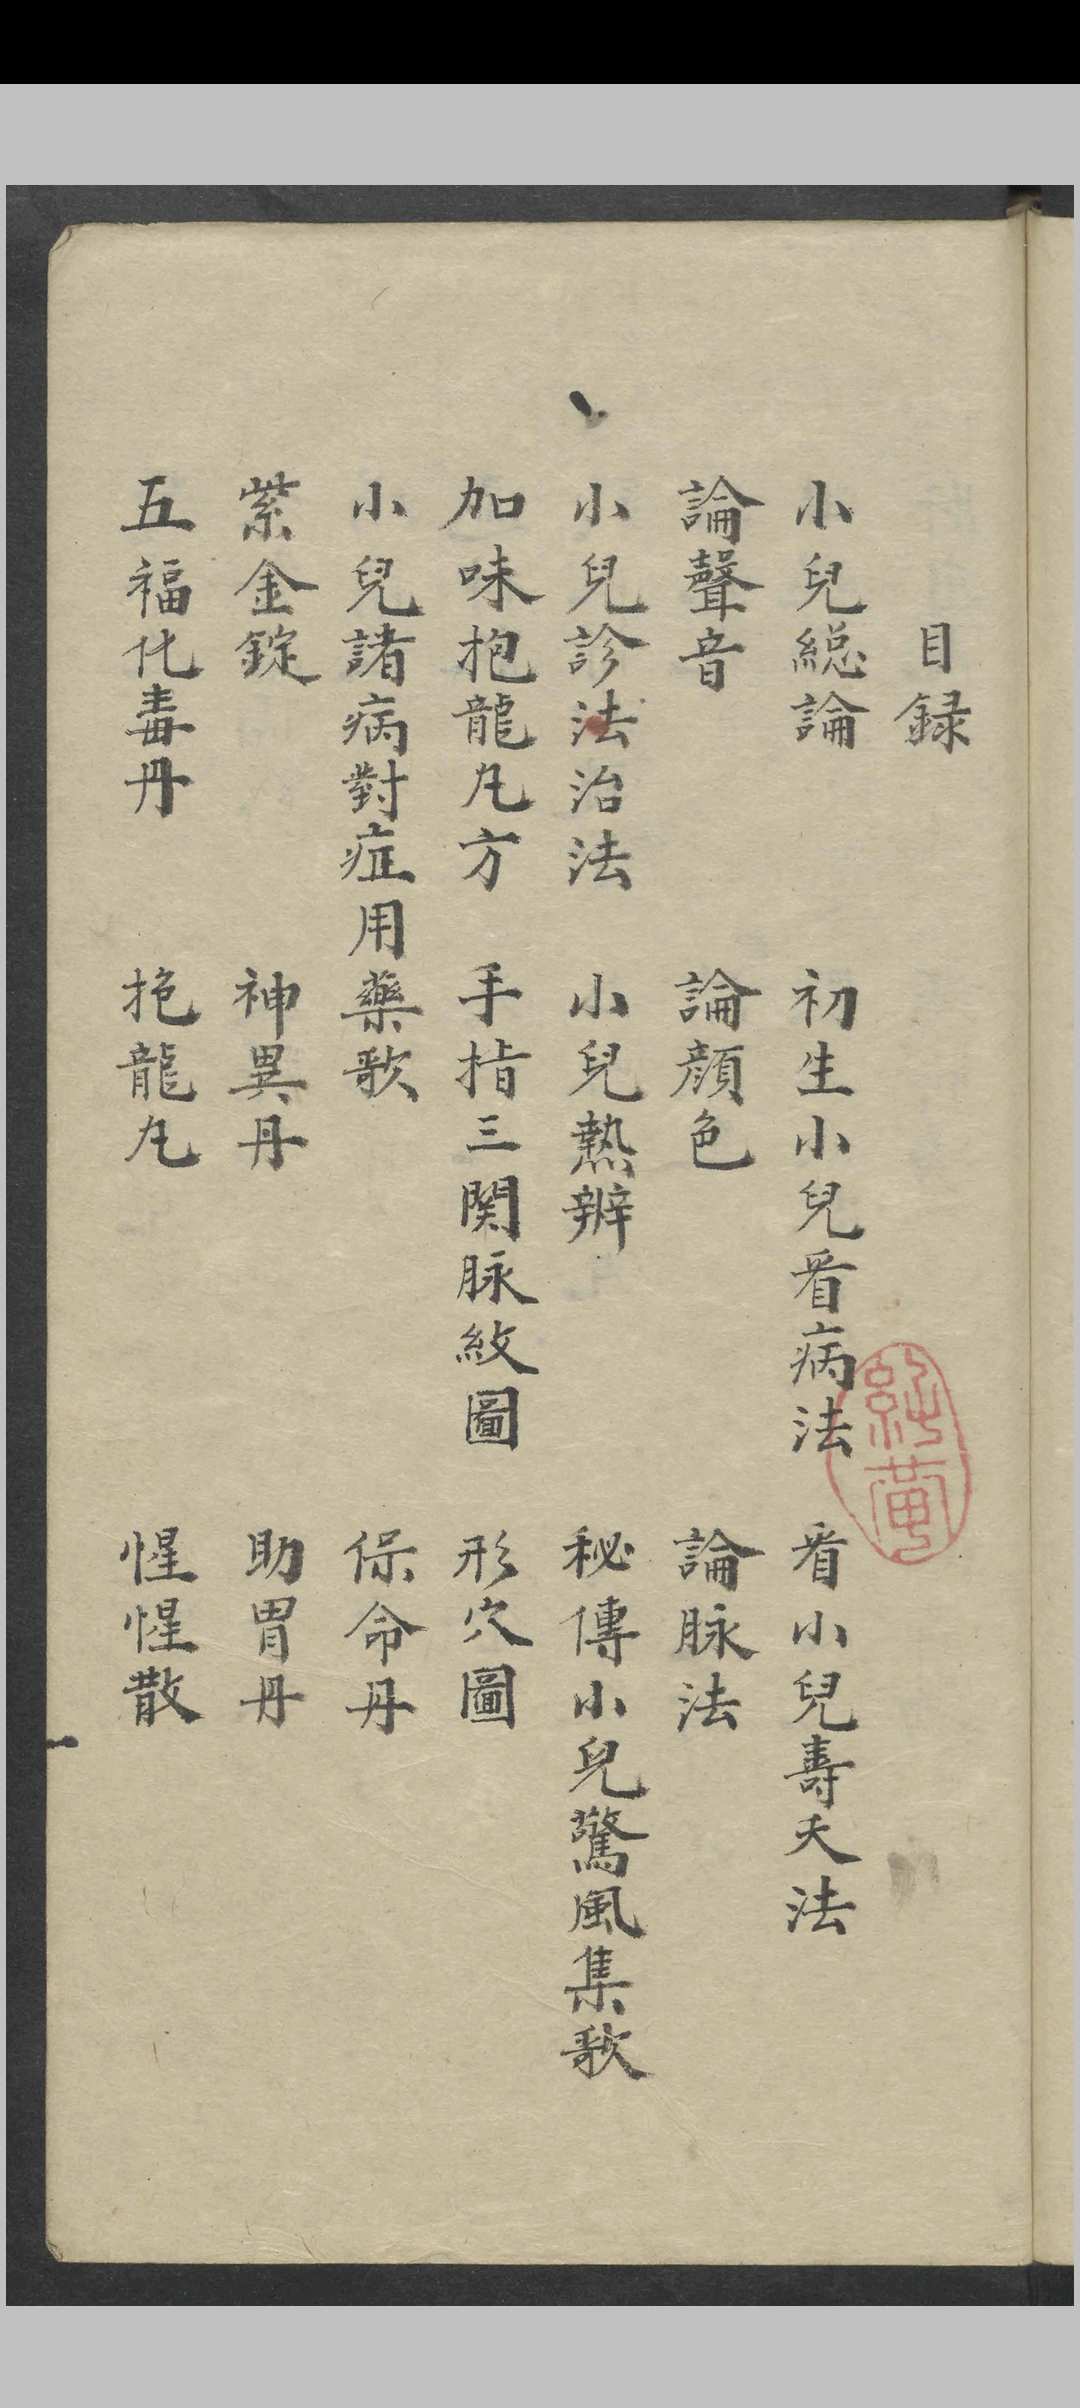 目録
小兒総論 初生小兒看病法 看小兒壽夭法
論聲音 論顔色 論脉法
小兒診法治法 小兒熱辨 秘傳小兒驚風集歌
加味抱龍丸方 手指三関脉紋圖 形穴圖
小兒諸病對症用藥歌 保命丹
紫金錠 神異丹 助胃丹
五福化毒丹 抱龍丸 惺惺散